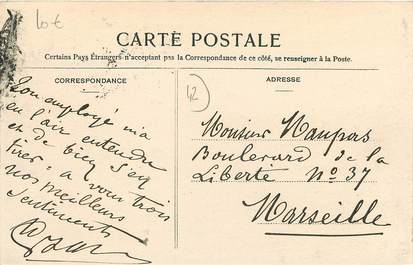 10 €
CARTE POSTALE
Certains Pays Étrangers n'acceptant pas la Correspondance de ce côté, se renseigner à la Poste.
CORRESPONDANCE
Ton employé m'a
eu l'air entendre
et de bien s'en
tirer, à vous trois
nos meilleurs
sentiments
ADRESSE
42
Monsieur Maupas
Boulevard de la
Liberté No 37
Marseille